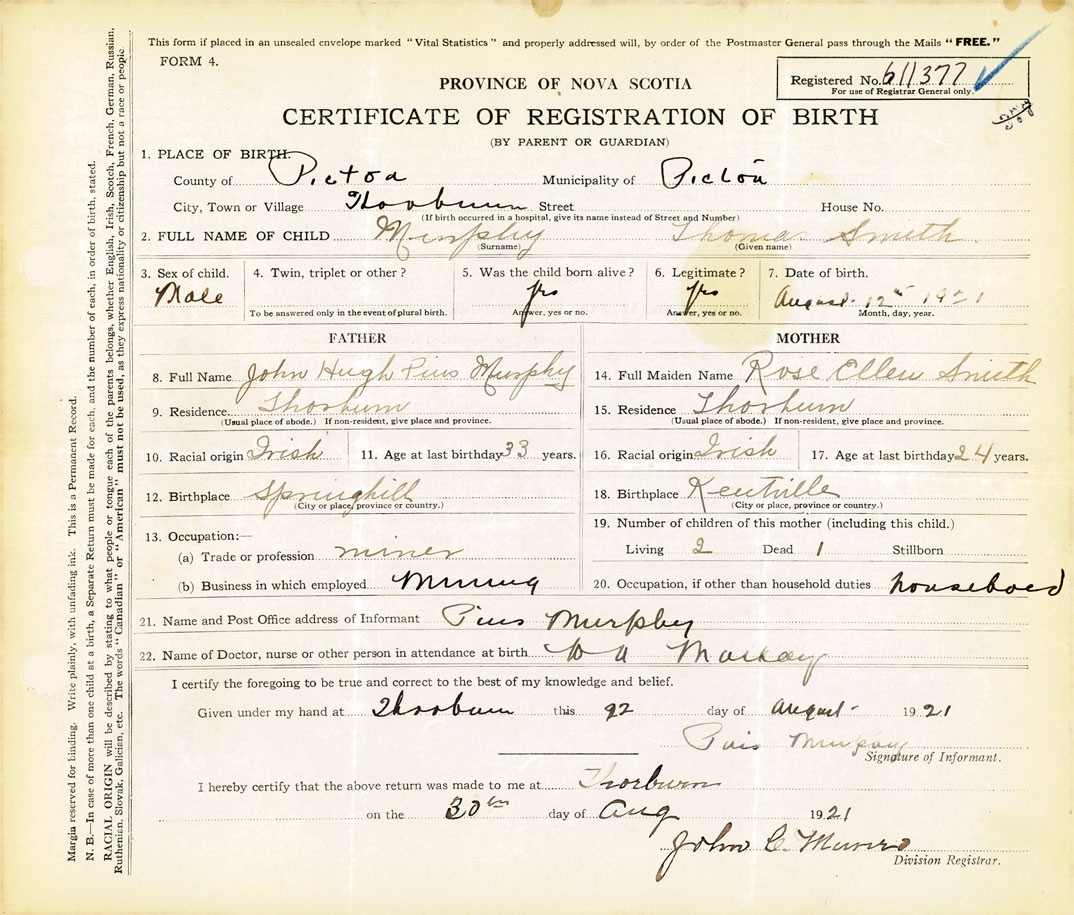 This form if placed in an unsealed envelope marked "Vital Statistics" and properly addressed will, by order of the Postmaster General pass through the Mails "FREE."
FORM 4.
Registered No. 611377
For use of Registrar General only.
PROVINCE OF NOVA SCOTIA
CERTIFICATE OF REGISTRATION OF BIRTH
(BY PARENT OR GUARDIAN)
1. PLACE OF BIRTH.
County of Pictou Municipality of Pictou
City, Town or Village Thorburn Street House No.
(If birth occurred in a hospital, give its name instead of Street and Number)
2. FULL NAME OF CHILD Murphy Thomas Smith
(Surname) (Given name)
3. Sex of child. 4. Twin, triplet or other? 5. Was the child born alive? 6. Legitimate? 7. Date of birth.
Male yes yes August 12th 1921
To be answered only in the event of plural birth. Answer, yes or no. Answer, yes or no. Month, day, year.
FATHER
8. Full Name John Hugh Pius Murphy
9. Residence Thorburn
(Usual place of abode.) If non-resident, give place and province.
10. Racial origin Irish 11. Age at last birthday 33 years.
12. Birthplace Springhill
(City or place, province or country.)
13. Occupation:—
(a) Trade or profession miner
(b) Business in which employed Mining
MOTHER
14. Full Maiden Name Rose Ellen Smith
15. Residence Thorburn
(Usual place of abode.) If non-resident, give place and province.
16. Racial origin Irish 17. Age at last birthday 24 years.
18. Birthplace Kentville
(City or place, province or country.)
19. Number of children of this mother (including this child.)
Living 2 Dead 1 Stillborn
20. Occupation, if other than household duties
21. Name and Post Office address of Informant Pius Murphy
22. Name of Doctor, nurse or other person in attendance at birth Mackay
I certify the foregoing to be true and correct to the best of my knowledge and belief.
Given under my hand at Thorburn this day of August 1921
Pius Murphy
Signature of Informant.
I hereby certify that the above return was made to me at Thorburn
on the 30th day of Aug 1921
John C. Munro
Division Registrar.
Margin reserved for binding. Write plainly, with unfading ink. This is a Permanent Record.
N. B.—In case of more than one child at a birth, a Separate Return must be made for each, and the number of each, in order of birth, stated.
RACIAL ORIGIN will be described by stating to what people or tongue each of the parents belongs, whether English, Irish, Scotch, French, German, Russian,
Ruthenian, Slovak, Galician, etc. The words "Canadian" or "American" must not be used, as they express nationality or citizenship but not a race or people.